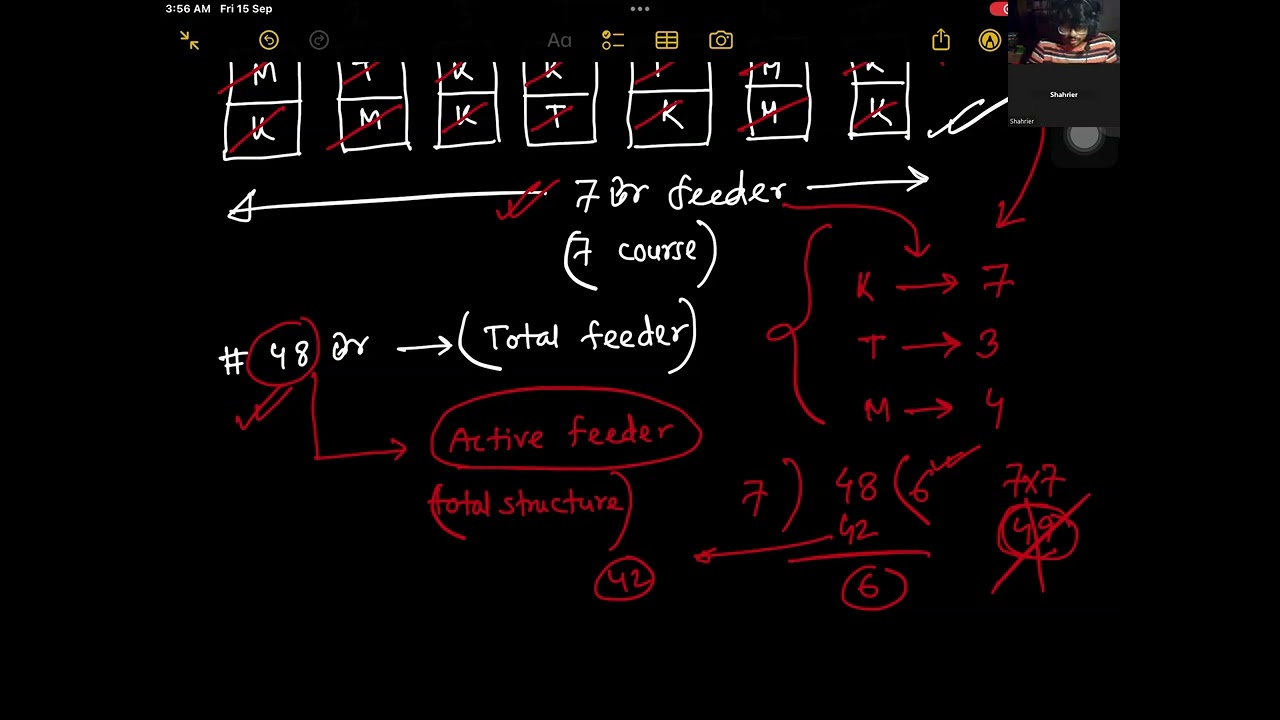 3:56 AM Fri 15 Sep
Aa
M T K K T M K
K M K T K M K
Shahrier
Shahrier
7 টা feeder
(7 course)
K → 7
# 48 টা → (Total feeder)
T → 3
M → 4
Active feeder
(total structure)
7 ) 48 ( 6
7x7
42
49
42
6